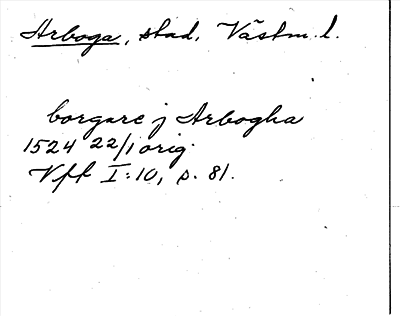 Arboga, stad, Västm. l.
borgare j Arbogha
1524 22/1 orig.
Vff I:10, s. 81.